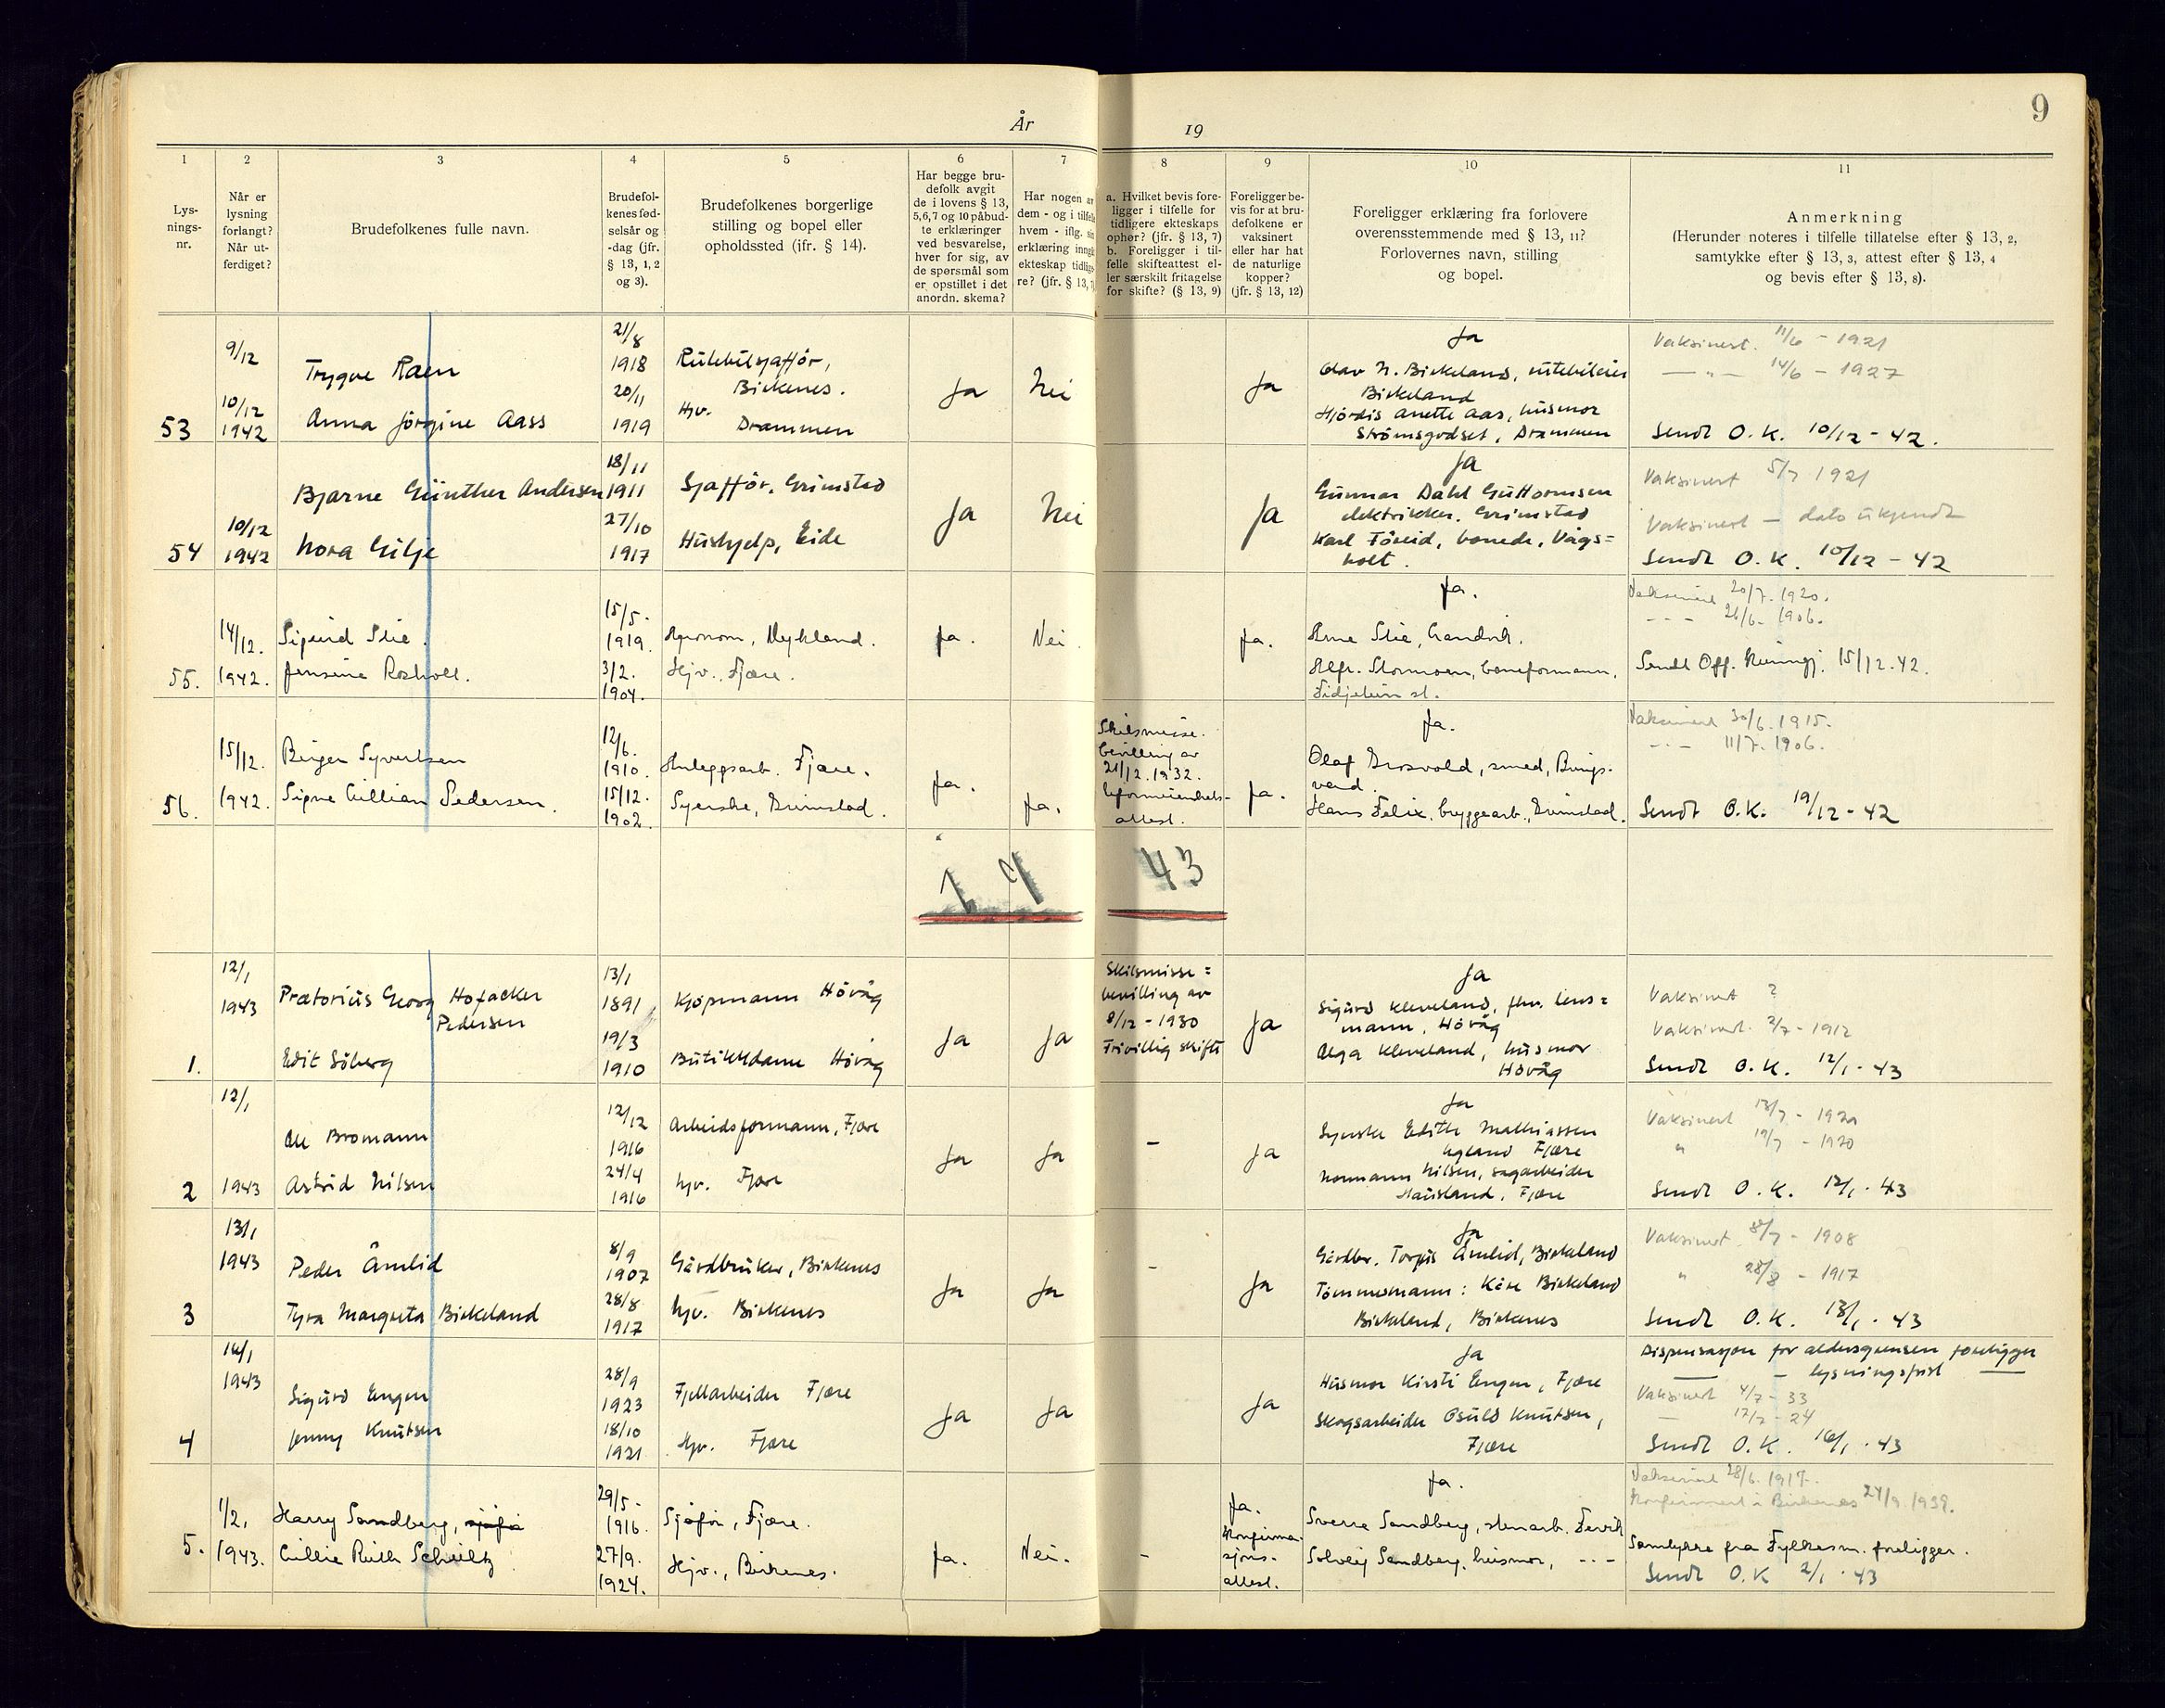 År 19
9
1 2 3 4 5 6 7 8 9 10 11
Lys-
nings-
nr.
Når er
lysning
forlangt?
Når ut-
ferdiget?
Brudefolkenes fulle navn.
Brudefol-
kenes fød-
selsår og
-dag (jfr.
§ 13, 1, 2
og 3).
Brudefolkenes borgerlige
stilling og bopel eller
opholdssted (jfr. § 14).
Har begge bru-
defolk avgit
de i lovens § 13,
5,6,7 og 10 påbud-
te erklæringer
ved besvarelse,
hver for sig, av
de spørsmål som
er opstillet i det
anordn. skema?
Har nogen av
dem - og i tilfelle
hvem - iflg. sin
erklæring inngåt
ekteskap tidlige-
re? (jfr. § 13, 7)
a. Hvilket bevis fore-
ligger i tilfelle for
tidligere ekteskaps
ophør? (jfr. § 13, 7)
b. Foreligger i til-
felle skifteattest el-
ler særskilt fritagelse
for skifte? (§ 13, 9)
Foreligger be-
vis for at bru-
defolkene er
vaksinert
eller har hat
de naturlige
kopper?
(jfr. § 13, 12)
Foreligger erklæring fra forlovere
overensstemmende med § 13, 11?
Forlovernes navn, stilling
og bopel.
Anmerkning
(Herunder noteres i tilfelle tillatelse efter § 13, 2,
samtykke efter § 13, 3, attest efter § 13, 4
og bevis efter § 13, 8).
53
9/12
10/12
1942
Trygve Raen
Anna Jörgine Aass
21/8
1918
20/11
1919
Rutebilsjafför,
Birkenes.
Hjv.
Drammen
Ja
Nei
Ja
Ja
Olav N. Birkeland, rutebileier
Birkeland
Hjördis Anette Aas, husmor
Strömsgodset, Drammen
Vaksinert. 11/6 - 1921
— " — 14/6 - 1927
Sendt O.K. 10/12 - 42.
54
10/12
1942
Bjarne Günther Andersen
Nora Gilje
18/11
1911
27/10
1917
Sjafför, Grimstad
Hushjelp, Eide
Ja
Nei
Ja
Ja
Gunnar Dahl Guttormsen
elektriker. Grimstad
Karl Töreid, bonede, Vågs=
holt.
Vaksinert 5/7 1921
Vaksinert - dato ukjendt
Sendt O.K. 10/12 - 42
55.
14/12.
1942.
Sigurd Slie.
Jensine Rosholt.
15/5.
1919.
3/2.
1904.
Agronom, Mykland.
Hjv., Fjære.
Ja.
Nei.
Ja.
Ja.
Arne Slie,
Alfr. Stormoen, baneformann,
st.
Vaksinert 20/7. 1920.
- - - 26/6. 1906.
Sendt Off. Kunngj. 15/12.42.
56.
15/12.
1942.
Birger Syvertsen
Signe Lillian Pedersen.
12/6.
1910.
15/12.
1902.
Anleggsarb. Fjære.
Syerske, Grimstad.
Ja.
Ja.
Skilsmisse.
bevilling av
21/12.1932.
attest.
Ja.
Ja.
Olaf Grosvold, smed, Bings-
vard.
Hans Felix, bryggearb., Grimstad.
Vaksinert 30/6. 1915.
- - - 11/7. 1906.
Sendt O.K. 19/12 - 42
1943
1.
12/1
1943
Prætorius Georg Hofacker
Pedersen
Edit Söberg
13/1
1891
19/3
1910
Kjøpmann Høvåg
Butikkdame Høvåg
Ja
Ja
Skilsmisse=
bevilling av
8/12 - 1930
Frivillig skifte
Ja
Ja
Sigurd Kleveland, fhv. lens=
mann, Høvåg
Olga Kleveland, husmor
Høvåg
Vaksinert ?
Vaksinert. 2/7 - 1912
Sendt O.K. 12/1 - 43
2
12/1
1943
Ole Bromann
Astrid Nilsen
12/12
1916
24/4
1916
Arbeidsformann, Fjære
hjv. Fjære
Ja
Ja
-
Ja
Ja
Syerske Edith Mathiassen
Fjære
Normann Nilsen, sagarbeider
Fjære
Vaksinert 13/7 - 1920
" 19/7 - 1920
Sendt O.K. 12/1 - 43
3
13/1
1943
Peder Åmlid
Tyra Margreta Birkeland
8/9
1907
28/8
1917
Gårdbruker, Birkenes
hjv. Birkenes
Ja
Ja
-
Ja
Ja
Gårdbr. Torjus Åmlid, Birkeland
Tömmermann: Kåre Birkeland
Birkeland, Birkenes
Vaksinert 8/7 - 1908
" 28/8 - 1917
Sendt O.K. 13/1 - 43
4
16/1
1943
Sigurd Engen
Jenny Knutsen
28/9
1923
18/10
1921
Fjellarbeider Fjære
Hjv. Fjære
Ja
Ja
Ja
Ja
Husmor Kirsti Engen, Fjære
Skogsarbeider Osuld Knutsen,
Fjære
Dispensasjon for aldersgrensen foreligger
— - lysningsfrist —
Vaksinert 4/7 - 33
— 17/7 - 24
Sendt O.K. 16/1 - 43
5.
1/2.
1943.
Harry Sandberg, sjåfør
Lillie Ruth Schultz
29/5.
1916.
27/9.
1924.
Sjåfør, Fjære.
Hjv., Birkenes.
Ja.
Nei.
-
Ja.
Konfirma-
sjons-
attest.
Ja.
Sverre Sandberg, stenarb. Fevik
Solveig Sandberg, husmor, - - -
Vaksinert 28/6. 1917.
Konfirmert i Birkenes 24/9. 1939.
Samtykke fra Fylkesm. foreligger.
Sendt O.K 2/1 - 43